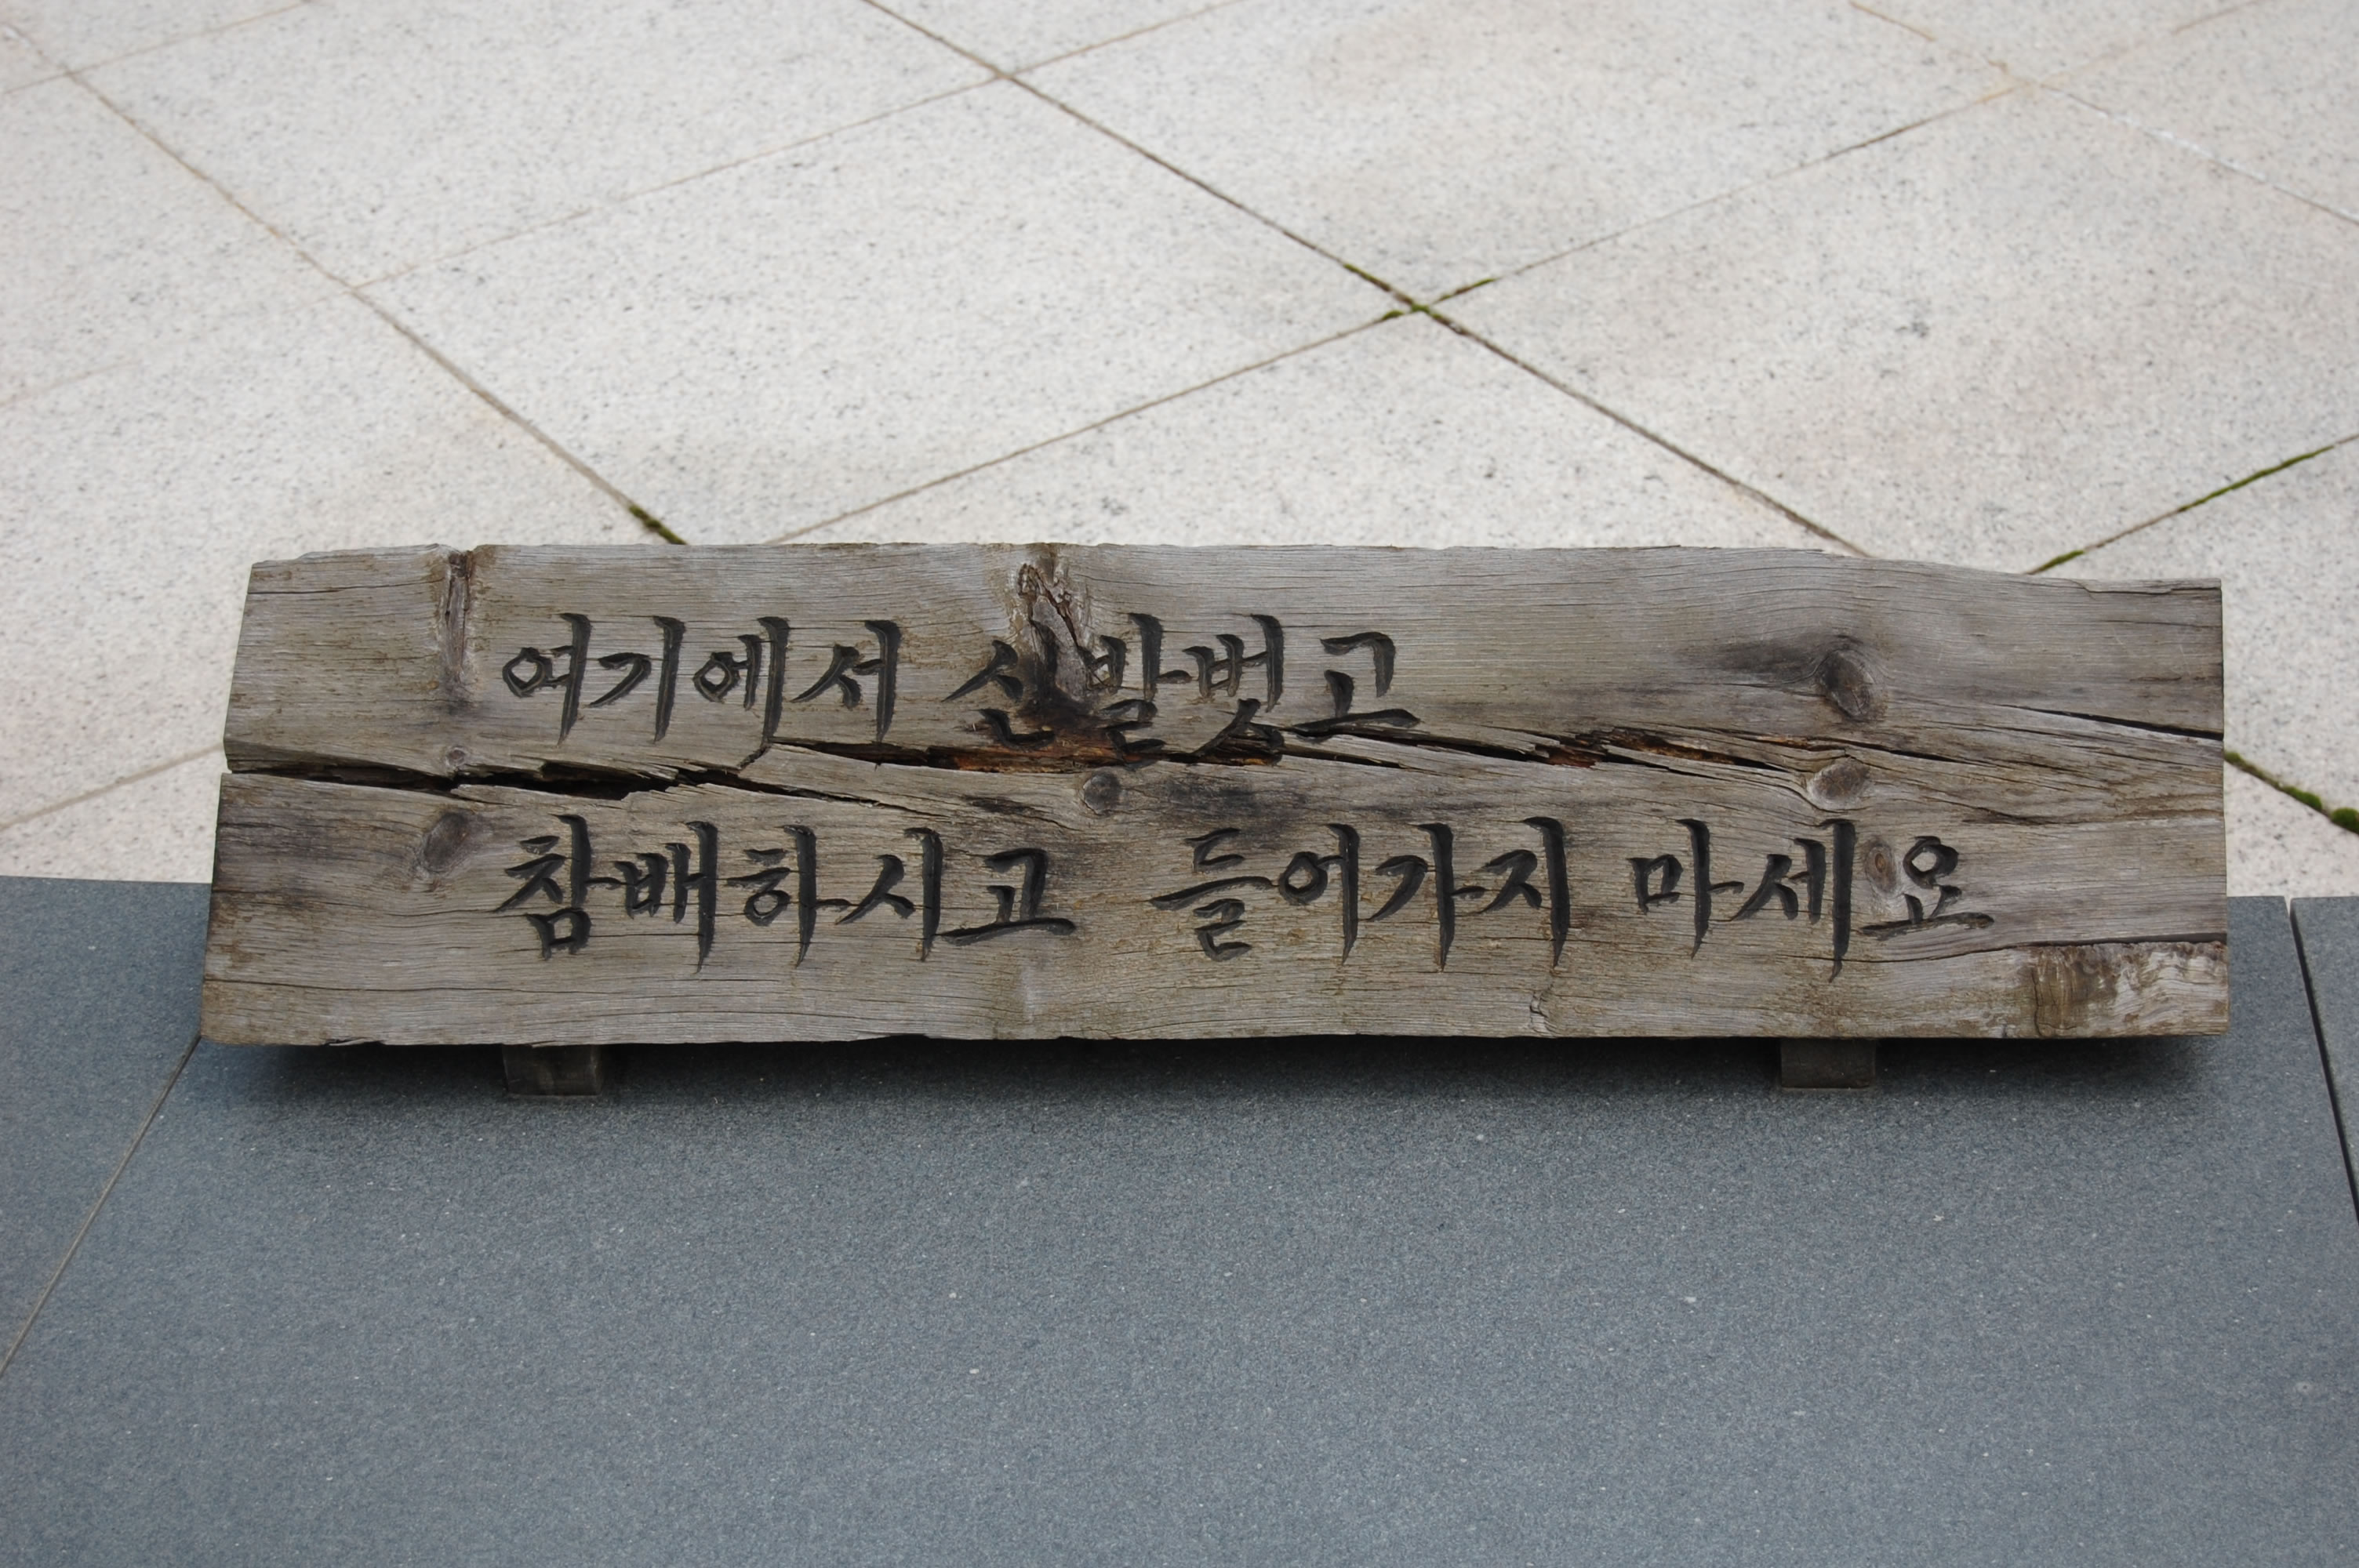 여기에서 신발벗고
참배하시고 들어가지 마세요